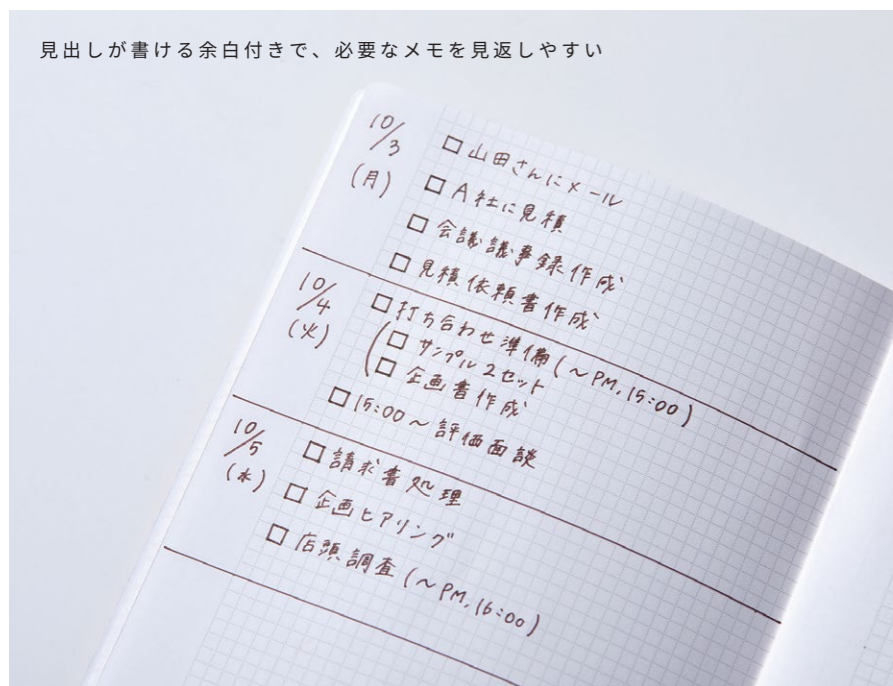 見出しが書ける余白付きで、必要なメモを見返しやすい
10/3
(月)
□山田さんにメール
□A社に見積
□会議議事録作成
□見積依頼書作成
10/4
(火)
□打ち合わせ準備(〜PM,15:00)
(□サンプル2セット
□企画書作成
□15:00〜評価面談
10/5
(水)
□請求書処理
□企画ヒアリング
□店頭調査(〜PM,16:00)